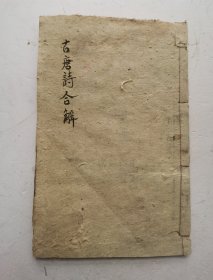 古唐詩合解